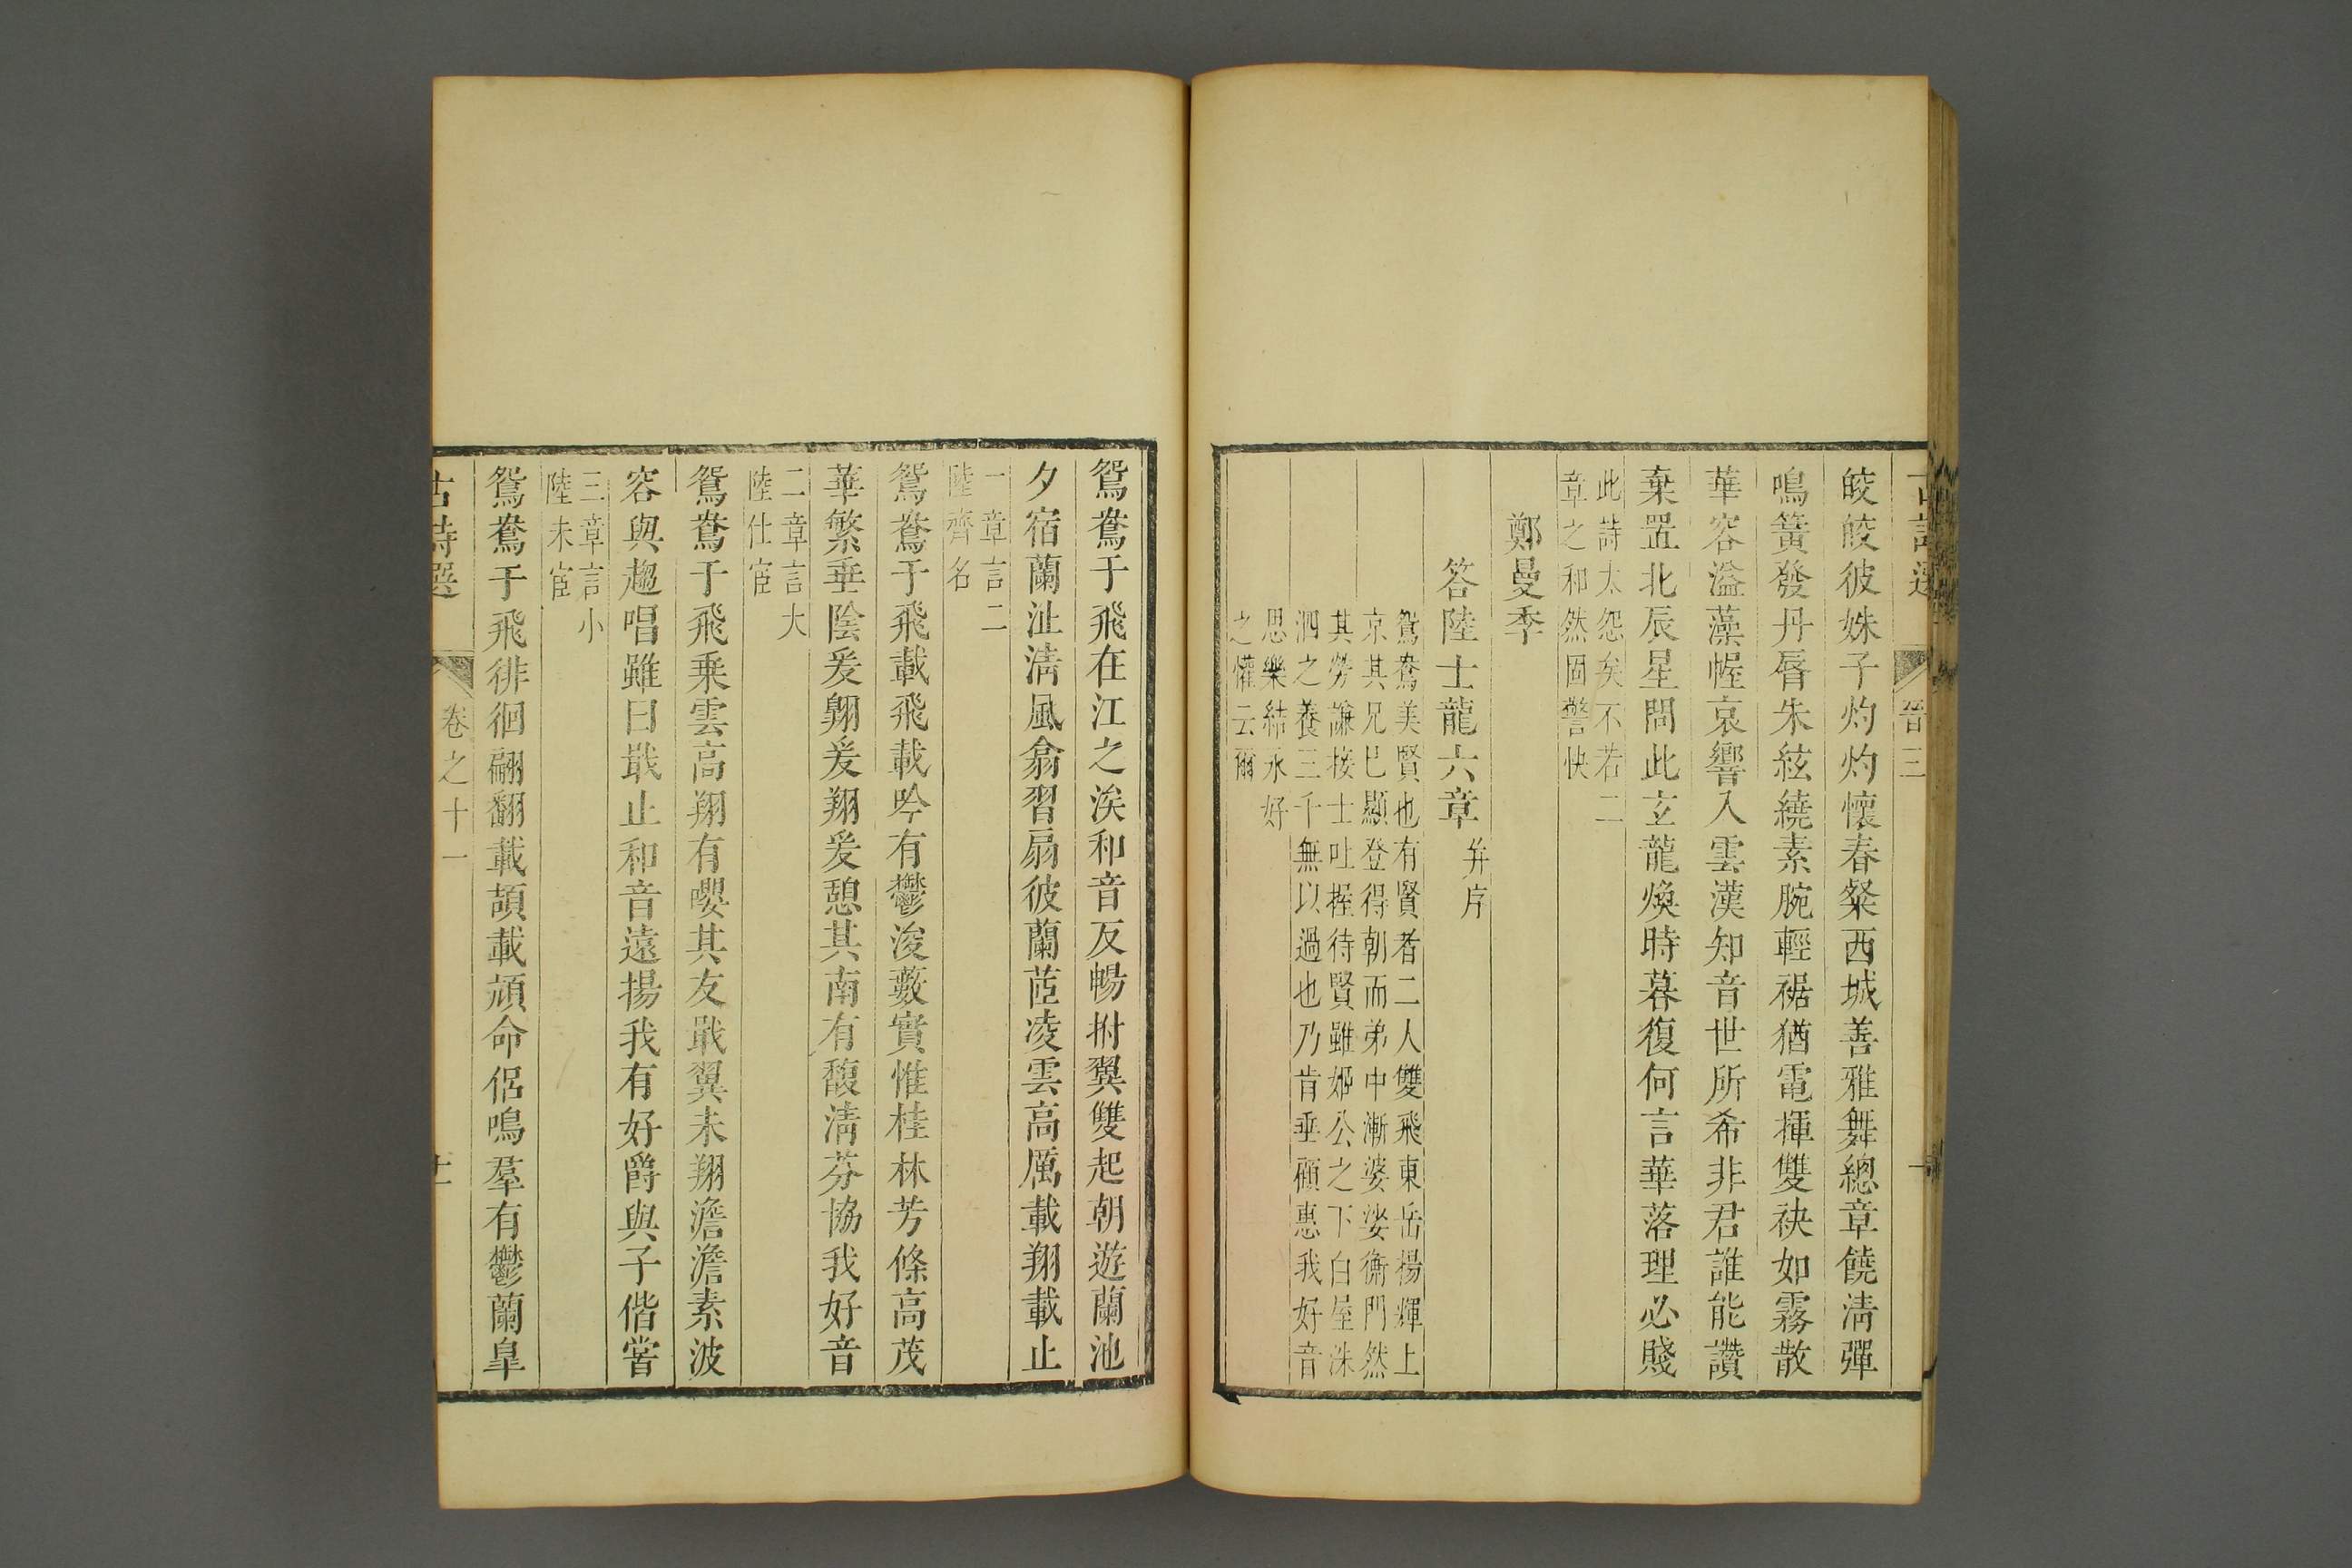 晉三
皎皎彼姝子灼灼懷春粲西城善雅舞總章饒淸彈
鳴簧發丹脣朱絃繞素腕輕裾猶電揮雙袂如霧散
華容溢藻幄哀響入雲漢知音世所希非君誰能讚
棄置北辰星問此玄龍煥時暮復何言華落理必賤
此詩太怨矣不若二
章之和然固警快
鄭曼季
答陸士龍六章
并序
鴛鴦美賢也有賢者二人雙飛東岳楊輝上
京其兄巳顯登得朝而弟中漸婆娑衡門然
其勞謙接士吐握待賢雖姬公之下白屋洙
泗之養三千無以過也乃肯垂顧惠我好音
思樂結永好
之懽云爾
鴛鴦于飛在江之涘和音友暢拊翼雙起朝遊蘭池
夕宿蘭沚淸風翕習扇彼蘭茝凌雲高厲載翔載止
一章言二
陸齊名
鴛鴦于飛載飛載吟有鬱浚藪實惟桂林芳條高茂
華繁垂陰爰翱爰翔爰憩其南有馥淸芬協我好音
二章言大
陸仕宦
鴛鴦于飛乗雲高翔有嚶其友戢翼未翔澹澹素波
容與趨唱雖曰戢止和音遠揚我有好爵與子偕嘗
三章言小
陸未宦
鴛鴦于飛徘徊翩翻載頡載頏命侶鳴羣有鬱蘭臯
古詩選
卷之十一